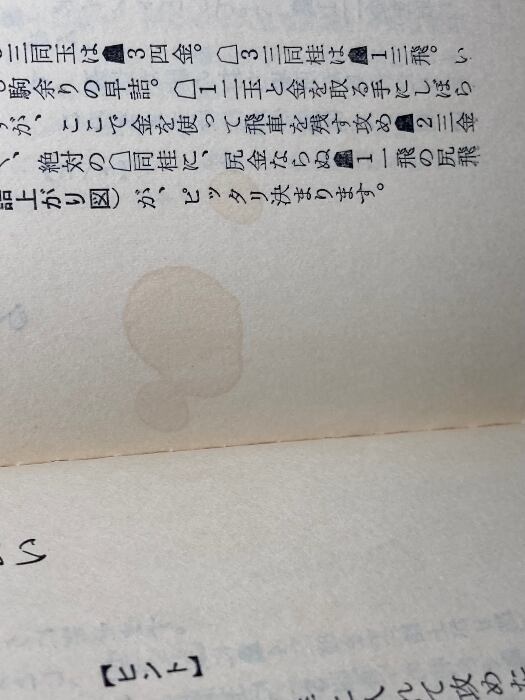 三同玉は☗３四金。☖３三同桂は☗１三飛。い
駒余りの早詰。☖１二玉と金を取る手にしぼら
が、ここで金を使って飛車を残す攻め☗２三金
、絶対の☖同桂に、尻金ならぬ☗１一飛の尻飛
詰上がり図）が、ピッタリ決まります。
い
【ヒント】
攻め